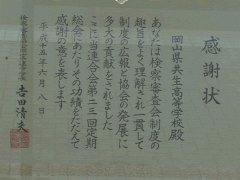 感謝状
岡山県共生高等学校殿
あなたは検察審査会制度の
趣旨をよく理解され一貫して
制度の広報と協会の発展に
多大の貢献をされました
ここに当連合会第二三回定期
総会にあたりその功績をたたえて
感謝の意を表します
平成十五年六月八日
吉田清夫